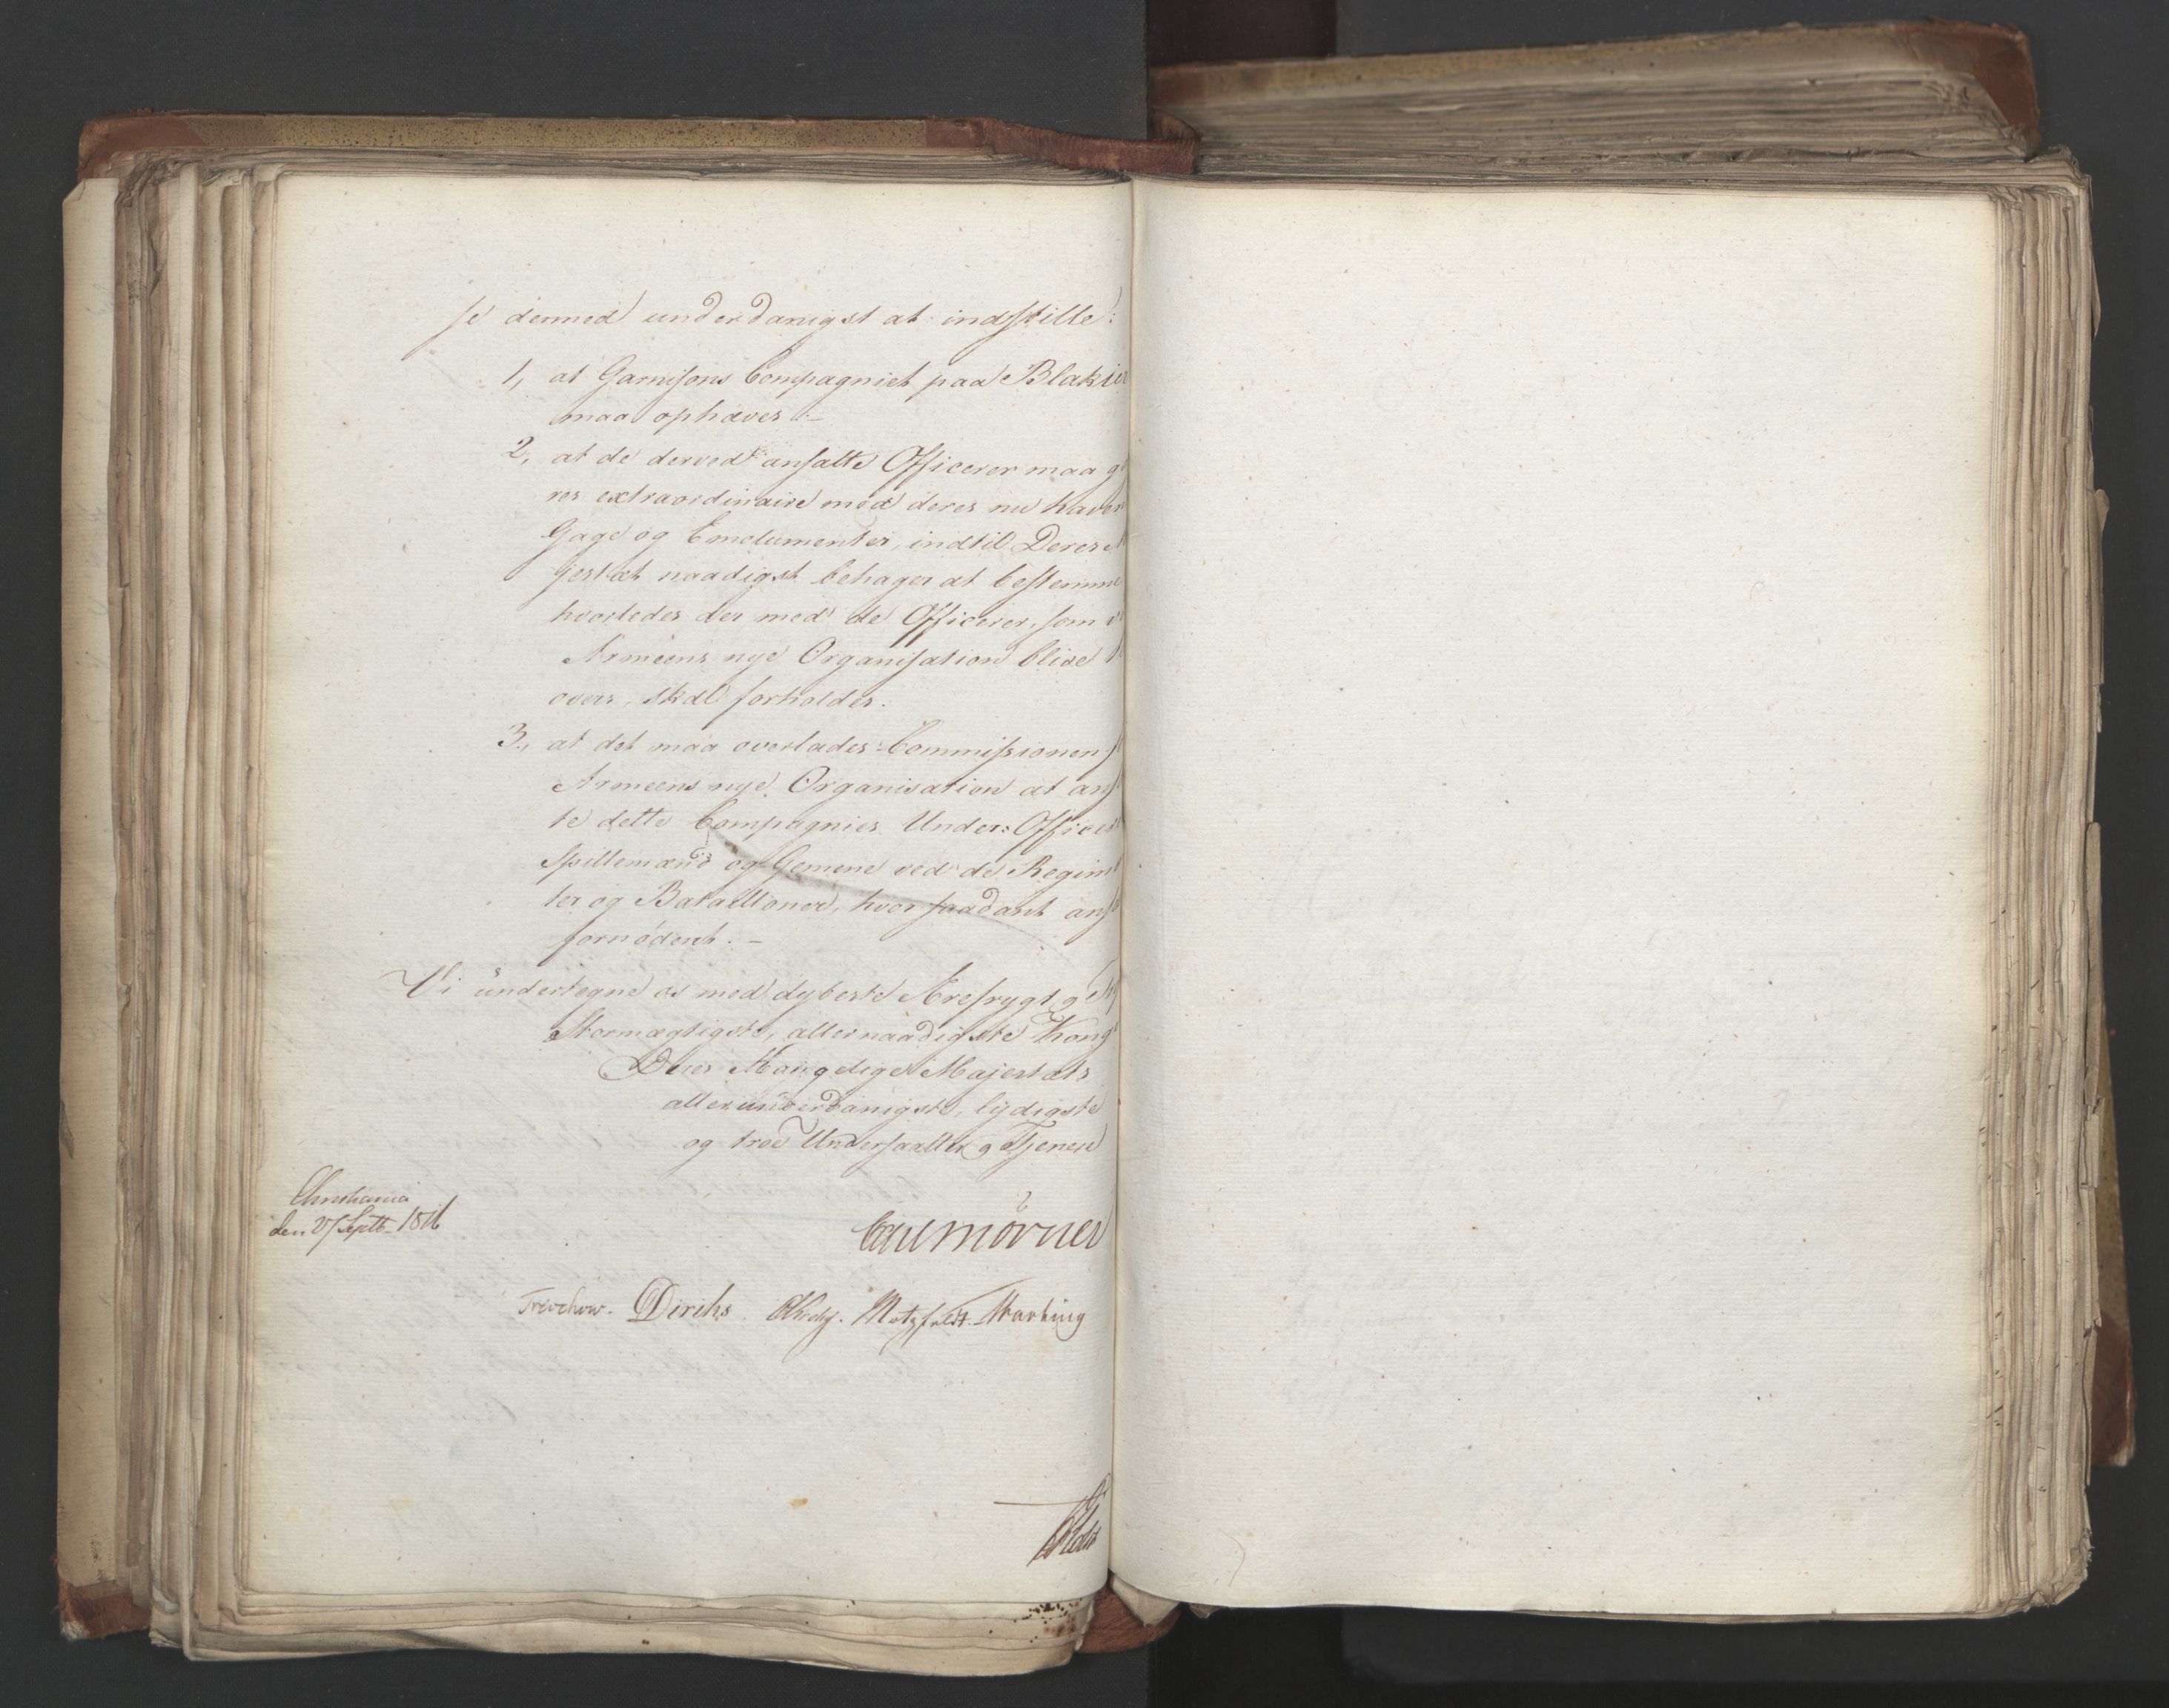 se dermed underdanigst at indstille:
1, at Garnisons Compagniet paa Blakier
maa ophæves. –
2, at de derved ansatte Officerer maa
res extraordinaire med deres nu haven
Gage og Emolumenter, indtil Deres
jestæt naadigst behager at bestemme
hvorledes der med de Officerer, som
Armeens nye Organisation blive
overs, skal forholdes.
3, at det maa overlades Commissionen
Armeens nye Organisation at ansæ
te dette Compagnies Under-Officer
Spillemænd og Gemene ved de Regim
ter og Batailloner, hvor saadant ans
fornødent. –
Vi undertegne os med dybeste Ærefrygt
Stormægtigste, allernaadigste Kong
Deres Kongelige Majestæts
allerunderdanigste, lydigste
og troe Undersaatter og Tjenere
Christiania
den 27 Septb. 1816
Carl Mörner
Treschow. Diriks. Krohg. Motzfeldt. Harbing